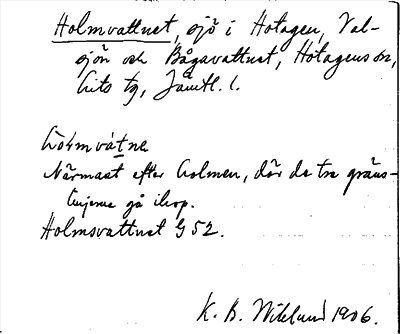 Holmvattnet, sjö i Hotagen, Val-
sjön och Bågavattnet, Hotagens sn,
Lits tg, Jämtl. l.
Holmvátne
Närmast efter holmen, där de tre gräns-
linjerna gå ihop.
Holmsvattnet G 52.
K. B. Wiklund 1906.